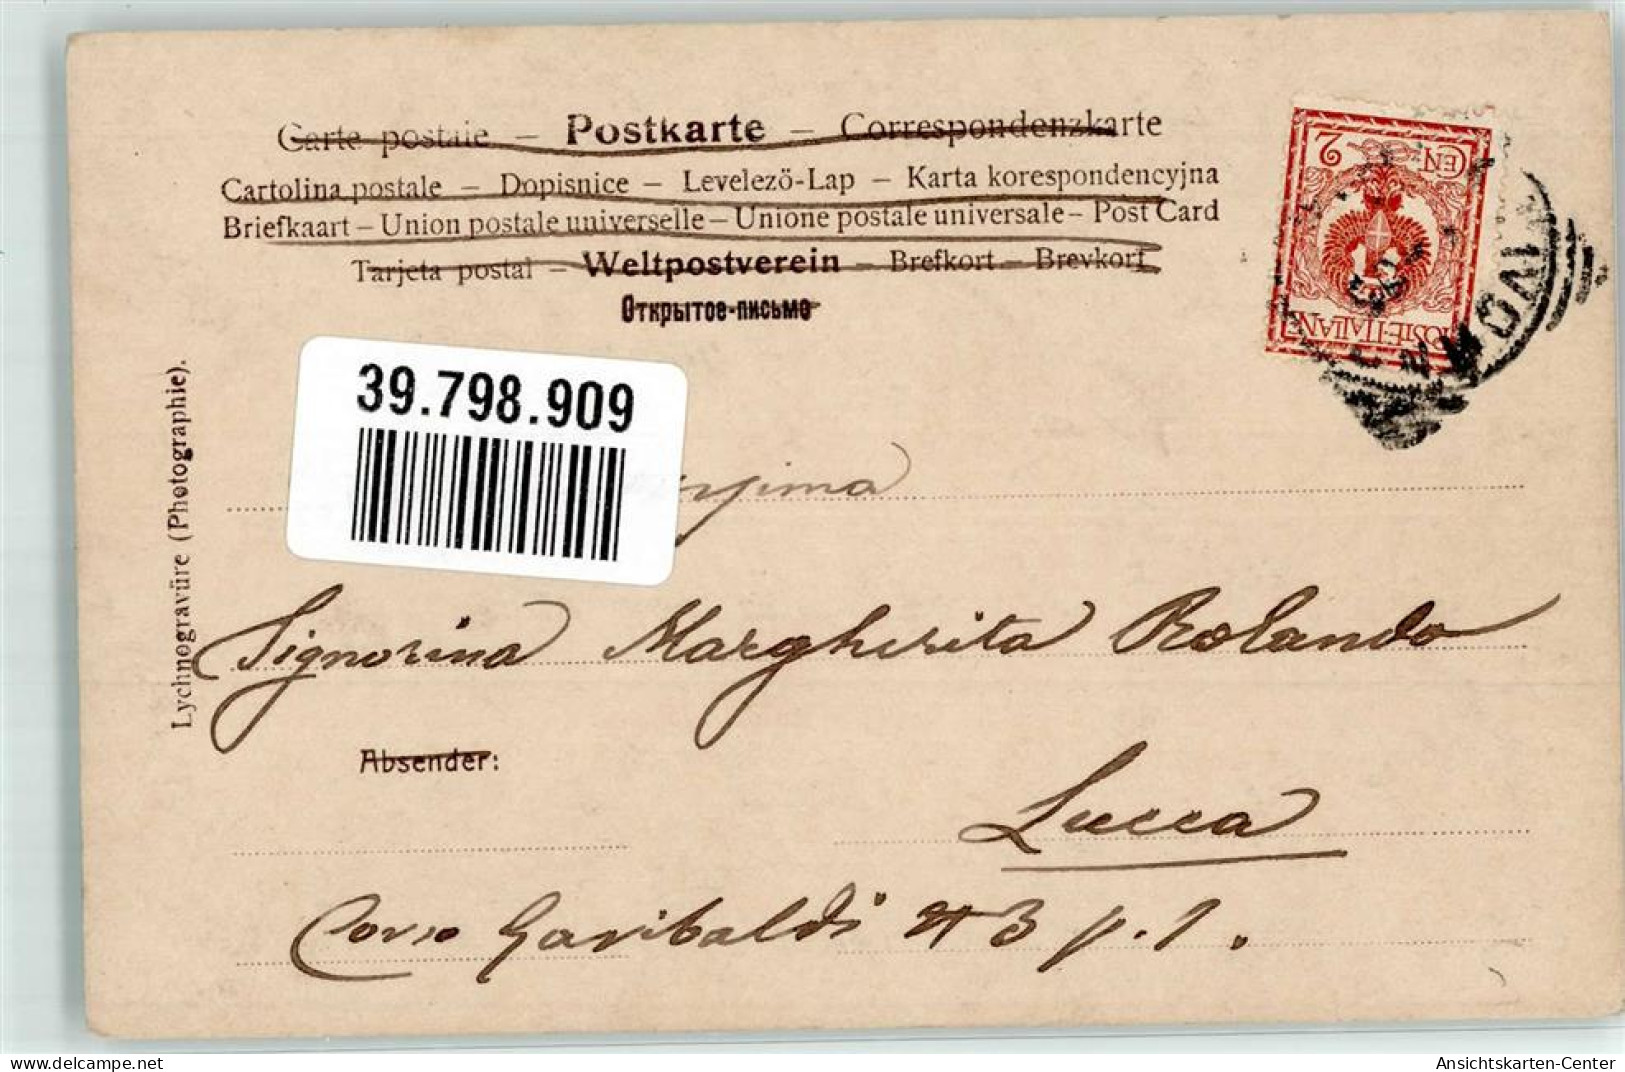 Carte postale – Postkarte – Correspondenzkarte
Cartolina postale – Dopisnice – Levelező-Lap – Karta korespondencyjna
Briefkaart – Union postale universelle – Unione postale universale – Post Card
Tarjeta postal – Weltpostverein – Brefkort – Brevkort
Открытое-письмо
CEN 2
POSTE·ITALIANE
39.798.909
Lychnogravüre (Photographie).
Signorina Margherita Rolando
Absender:
Lucca
Corso Garibaldi # 3 p. 1.
delcampe.net
Ansichtskarten-Center